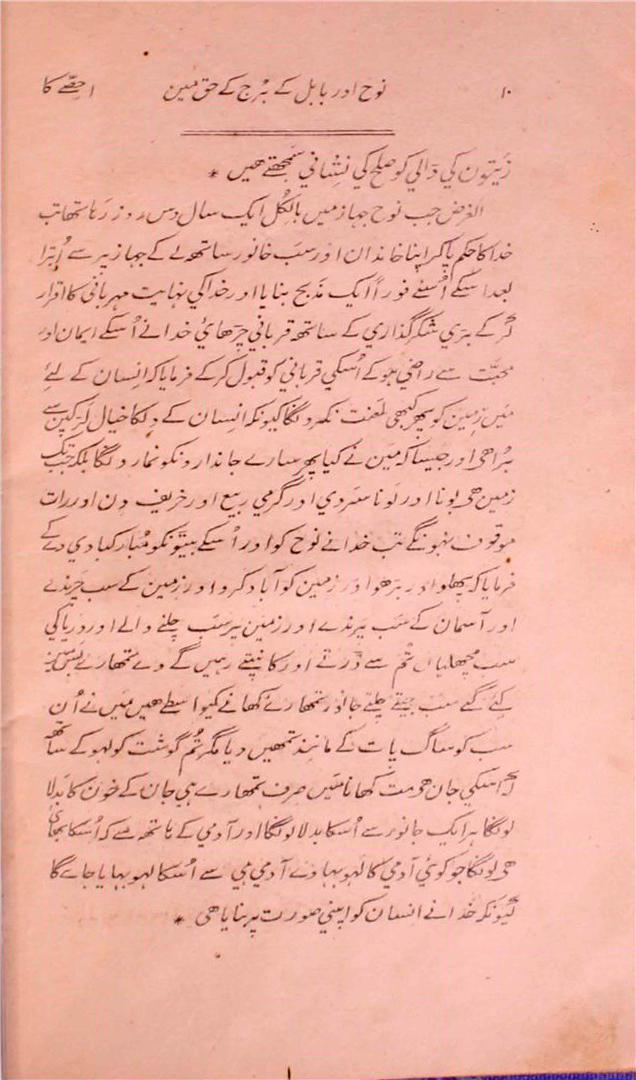 ۱۰ نوح اور بابل کے بُرج کے حق مین ۱ حِصّے کا
زَیتون کي ڈالي کو صلح کي نِشاني سَمجھتے هَیں *
الغرض جب نوح جہاز میں بالکُل ایک سال دس روز رہا تھا تب
خدا کا حکم پا کر اپنا خاندان اور سَب جانور ساتھ لے کے جہاز پر سے اُترا
بعد اسکے اُسنے فوراً ایک مذبح بنایا اور خدا کي نہایت مہرباني کا اقرار
کر کے بڑي شکرگذاري کے ساتھ قرباني چڑھائي خدا نے اُسکے ایمان اور
محبّت سے راضي ہو کے اُسکي قرباني کو قبول کر کے فرمایا کہ اِنسان کے لئے
مَیں زمین کو پھر کبھي لعنت نکرونگا کیونکہ اِنسان کے دِلکا خیال لڑکپن سے
بُرا هي اور جیسا کہ مَین نے کیا پھر سارے جاندارونکو نمارونگا بلکہ جب تک
زمین هي بونا اور لَونا سردي اور گرمي ربیع اور خریف دِن اور رات
موقوف نہونگے تب خدا نے نوح کو اور اُسکے بیٹونکو مُبارکبادي دے کے
فرمایا کہ پھلو اور بڑھو اور زمین کو آباد کرو اور زمین کے سب چرندے
اور آسمان کے سَب پرندے اور زمین پر سَب چلنے والے اور دریا کي
سب مچھلیاں تُم سے ڈرتے اور کانپتے رہیں گے وے تمھارے بس میں
کِئے گئے سب جیتے چلتے جانور تمھارے کھانے کیواسطے هَیں میں نے اُن
سب کو ساگ پات کے مانِند تمھیں دیا مگر تُم گوشت کو لہو کے ساتھ
کہ اسکي جان هي مت کھانا مَیں صِرف تمھارے هي جان کے خون کا بدلا
لونگا ہر ایک جانور سے اُسکا بدلا لونگا اور آدمي کے ہاتھ سے کہ اُسکا بھائي
هي لونگا جو کوئي آدمي کا لہو بہاوے آدمي هي سے اُسکا لہو بہایا جاےگا
کیونکہ خُدا نے اِنسان کو اپني صورت پر بنایا هي *